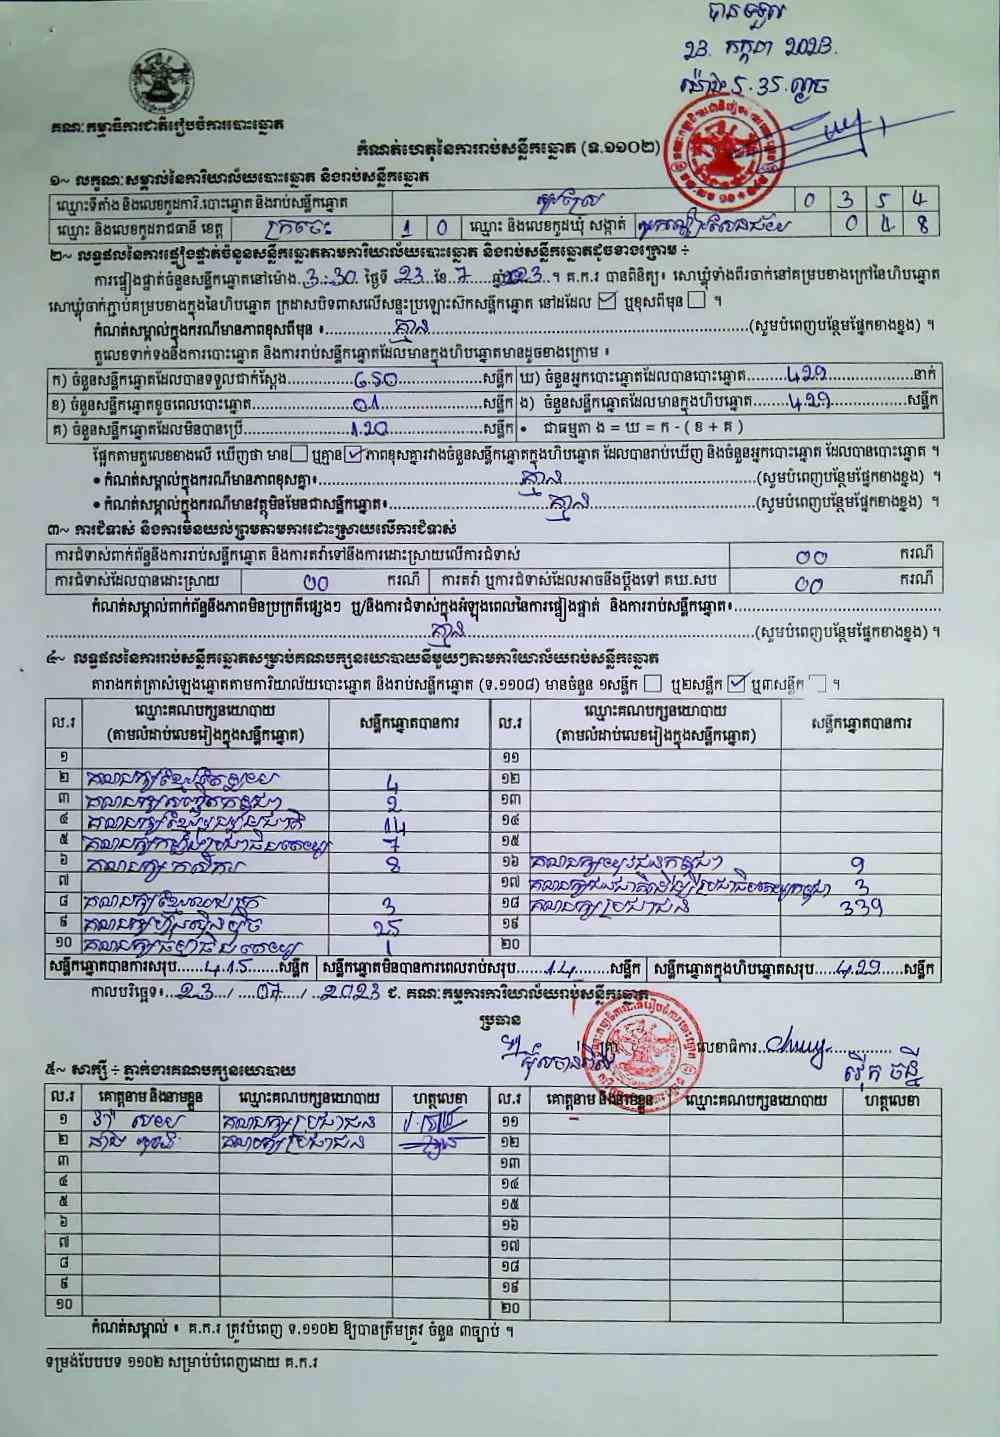 បានទទួល
23. កក្កដា 2023.
ម៉ោង 5. 35. ល្ងាច
គណៈកម្មាធិការជាតិរៀបចំការបោះឆ្នោត
កំណត់ហេតុនៃការរាប់សន្លឹកឆ្នោត (ទ.១១០២)
១~ លក្ខណៈសម្គាល់នៃការិយាល័យបោះឆ្នោត និងរាប់សន្លឹកឆ្នោត
ឈ្មោះទីតាំង និងលេខកូដការិ.បោះឆ្នោត និងរាប់សន្លឹកឆ្នោត 0 3 5 4
ឈ្មោះ និងលេខកូដរាជធានី ខេត្ត ក្រចេះ 1 0 ឈ្មោះ និងលេខកូដឃុំ សង្កាត់ 0 4 8
២~ លទ្ធផលនៃការផ្ទៀងផ្ទាត់ចំនួនសន្លឹកឆ្នោតតាមការិយាល័យបោះឆ្នោត និងរាប់សន្លឹកឆ្នោតដូចខាងក្រោម ÷
ការផ្ទៀងផ្ទាត់ចំនួនសន្លឹកឆ្នោតនៅម៉ោង 3:30 ថ្ងៃទី 23 ខែ 7 ឆ្នាំ 2023 ។ គ.ក.រ បានពិនិត្យ៖ សោឃ្លុំទាំងពីរចាក់នៅគម្របខាងក្រៅនៃហិបឆ្នោត
សោឃ្លុំចាក់ភ្ជាប់គម្របខាងក្នុងនៃហិបឆ្នោត ក្រដាសបិទពាសលើសន្ទះប្រឡោះសឹកសន្លឹកឆ្នោត នៅដដែល ☑ ឬខុសពីមុន ☐ ។
កំណត់សម្គាល់ក្នុងករណីមានភាពខុសពីមុន ៖ គ្មាន (សូមបំពេញបន្ថែមផ្នែកខាងខ្នង) ។
តួលេខទាក់ទងនឹងការបោះឆ្នោត និងការរាប់សន្លឹកឆ្នោតដែលមានក្នុងហិបឆ្នោតមានដូចខាងក្រោម ៖
ក) ចំនួនសន្លឹកឆ្នោតដែលបានទទួលជាក់ស្តែង 550 សន្លឹក ឃ) ចំនួនអ្នកបោះឆ្នោតដែលបានបោះឆ្នោត 429 នាក់
ខ) ចំនួនសន្លឹកឆ្នោតខូចពេលបោះឆ្នោត 01 សន្លឹក ង) ចំនួនសន្លឹកឆ្នោតដែលមានក្នុងហិបឆ្នោត 429 សន្លឹក
គ) ចំនួនសន្លឹកឆ្នោតដែលមិនបានប្រើ 120 សន្លឹក • ជាធម្មតា ង = ឃ = ក - ( ខ + គ )
ផ្អែកតាមតួលេខខាងលើ ឃើញថា មាន ☐ ឬគ្មាន ☑ ភាពខុសគ្នារវាងចំនួនសន្លឹកឆ្នោតក្នុងហិបឆ្នោត ដែលបានរាប់ឃើញ និងចំនួនអ្នកបោះឆ្នោត ដែលបានបោះឆ្នោត ។
• កំណត់សម្គាល់ក្នុងករណីមានភាពខុសគ្នា៖ គ្មាន (សូមបំពេញបន្ថែមផ្នែកខាងខ្នង) ។
• កំណត់សម្គាល់ក្នុងករណីមានវត្ថុមិនមែនជាសន្លឹកឆ្នោត៖ គ្មាន (សូមបំពេញបន្ថែមផ្នែកខាងខ្នង) ។
៣~ ការជំទាស់ និងការមិនយល់ព្រមតាមការដោះស្រាយលើការជំទាស់
ការជំទាស់ពាក់ព័ន្ធនឹងការរាប់សន្លឹកឆ្នោត និងការតវ៉ាទៅនឹងការដោះស្រាយលើការជំទាស់ 00 ករណី
ការជំទាស់ដែលបានដោះស្រាយ 00 ករណី ការតវ៉ា ឬការជំទាស់ដែលអាចនឹងប្តឹងទៅ គឃ.សប 00 ករណី
កំណត់សម្គាល់ពាក់ព័ន្ធនឹងភាពមិនប្រក្រតីផ្សេងៗ ឬ/និងការជំទាស់ក្នុងអំឡុងពេលនៃការផ្ទៀងផ្ទាត់ និងការរាប់សន្លឹកឆ្នោត៖
គ្មាន (សូមបំពេញបន្ថែមផ្នែកខាងខ្នង) ។
៤~ លទ្ធផលនៃការរាប់សន្លឹកឆ្នោតសម្រាប់គណបក្សនយោបាយនីមួយៗតាមការិយាល័យរាប់សន្លឹកឆ្នោត
តារាងកត់ត្រាសំឡេងឆ្នោតតាមការិយាល័យបោះឆ្នោត និងរាប់សន្លឹកឆ្នោត (ទ.១១០៨) មានចំនួន ១សន្លឹក ☐ ឬ២សន្លឹក ☑ ឬ៣សន្លឹក ☐ ។
ល.រ ឈ្មោះគណបក្សនយោបាយ (តាមលំដាប់លេខរៀងក្នុងសន្លឹកឆ្នោត) សន្លឹកឆ្នោតបានការ ល.រ ឈ្មោះគណបក្សនយោបាយ (តាមលំដាប់លេខរៀងក្នុងសន្លឹកឆ្នោត) សន្លឹកឆ្នោតបានការ
១ ១១
២ 4 ១២
៣ 2 ១៣
៤ គណបក្សខ្មែររួបរួមជាតិ 14 ១៤
៥ គណបក្សកម្លាំងប្រជាធិបតេយ្យ 7 ១៥
៦ គណបក្សកសិករ 8 ១៦ គណបក្សយុវជនកម្ពុជា 9
៧ ១៧ 3
៨ គណបក្សខ្មែរអភិរក្ស 3 ១៨ គណបក្សប្រជាជន 339
៩ គណបក្សហ្វ៊ុនស៊ិនប៉ិច 25 ១៩
១០ 1 ២០
សន្លឹកឆ្នោតបានការសរុប 415 សន្លឹក សន្លឹកឆ្នោតមិនបានការពេលរាប់សរុប 14 សន្លឹក សន្លឹកឆ្នោតក្នុងហិបឆ្នោតសរុប 429 សន្លឹក
កាលបរិច្ឆេទ៖ 23 / 07 / 2023 ជ. គណៈកម្មការការិយាល័យរាប់សន្លឹកឆ្នោត
ប្រធាន
លេខាធិការ
វ៉ើក ចន្នី
៥~ សាក្សី ÷ ភ្នាក់ងារគណបក្សនយោបាយ
ល.រ គោត្តនាម និងនាមខ្លួន ឈ្មោះគណបក្សនយោបាយ ហត្ថលេខា ល.រ គោត្តនាម និងនាមខ្លួន ឈ្មោះគណបក្សនយោបាយ ហត្ថលេខា
១ គណបក្សប្រជាជន ១១
២ គណបក្សប្រជាជន ១២
៣ ១៣
៤ ១៤
៥ ១៥
៦ ១៦
៧ ១៧
៨ ១៨
៩ ១៩
១០ ២០
កំណត់សម្គាល់ ៖ គ.ក.រ ត្រូវបំពេញ ទ.១១០២ ឱ្យបានត្រឹមត្រូវ ចំនួន ៣ច្បាប់ ។
ទម្រង់បែបបទ ១១០២ សម្រាប់បំពេញដោយ គ.ក.រ